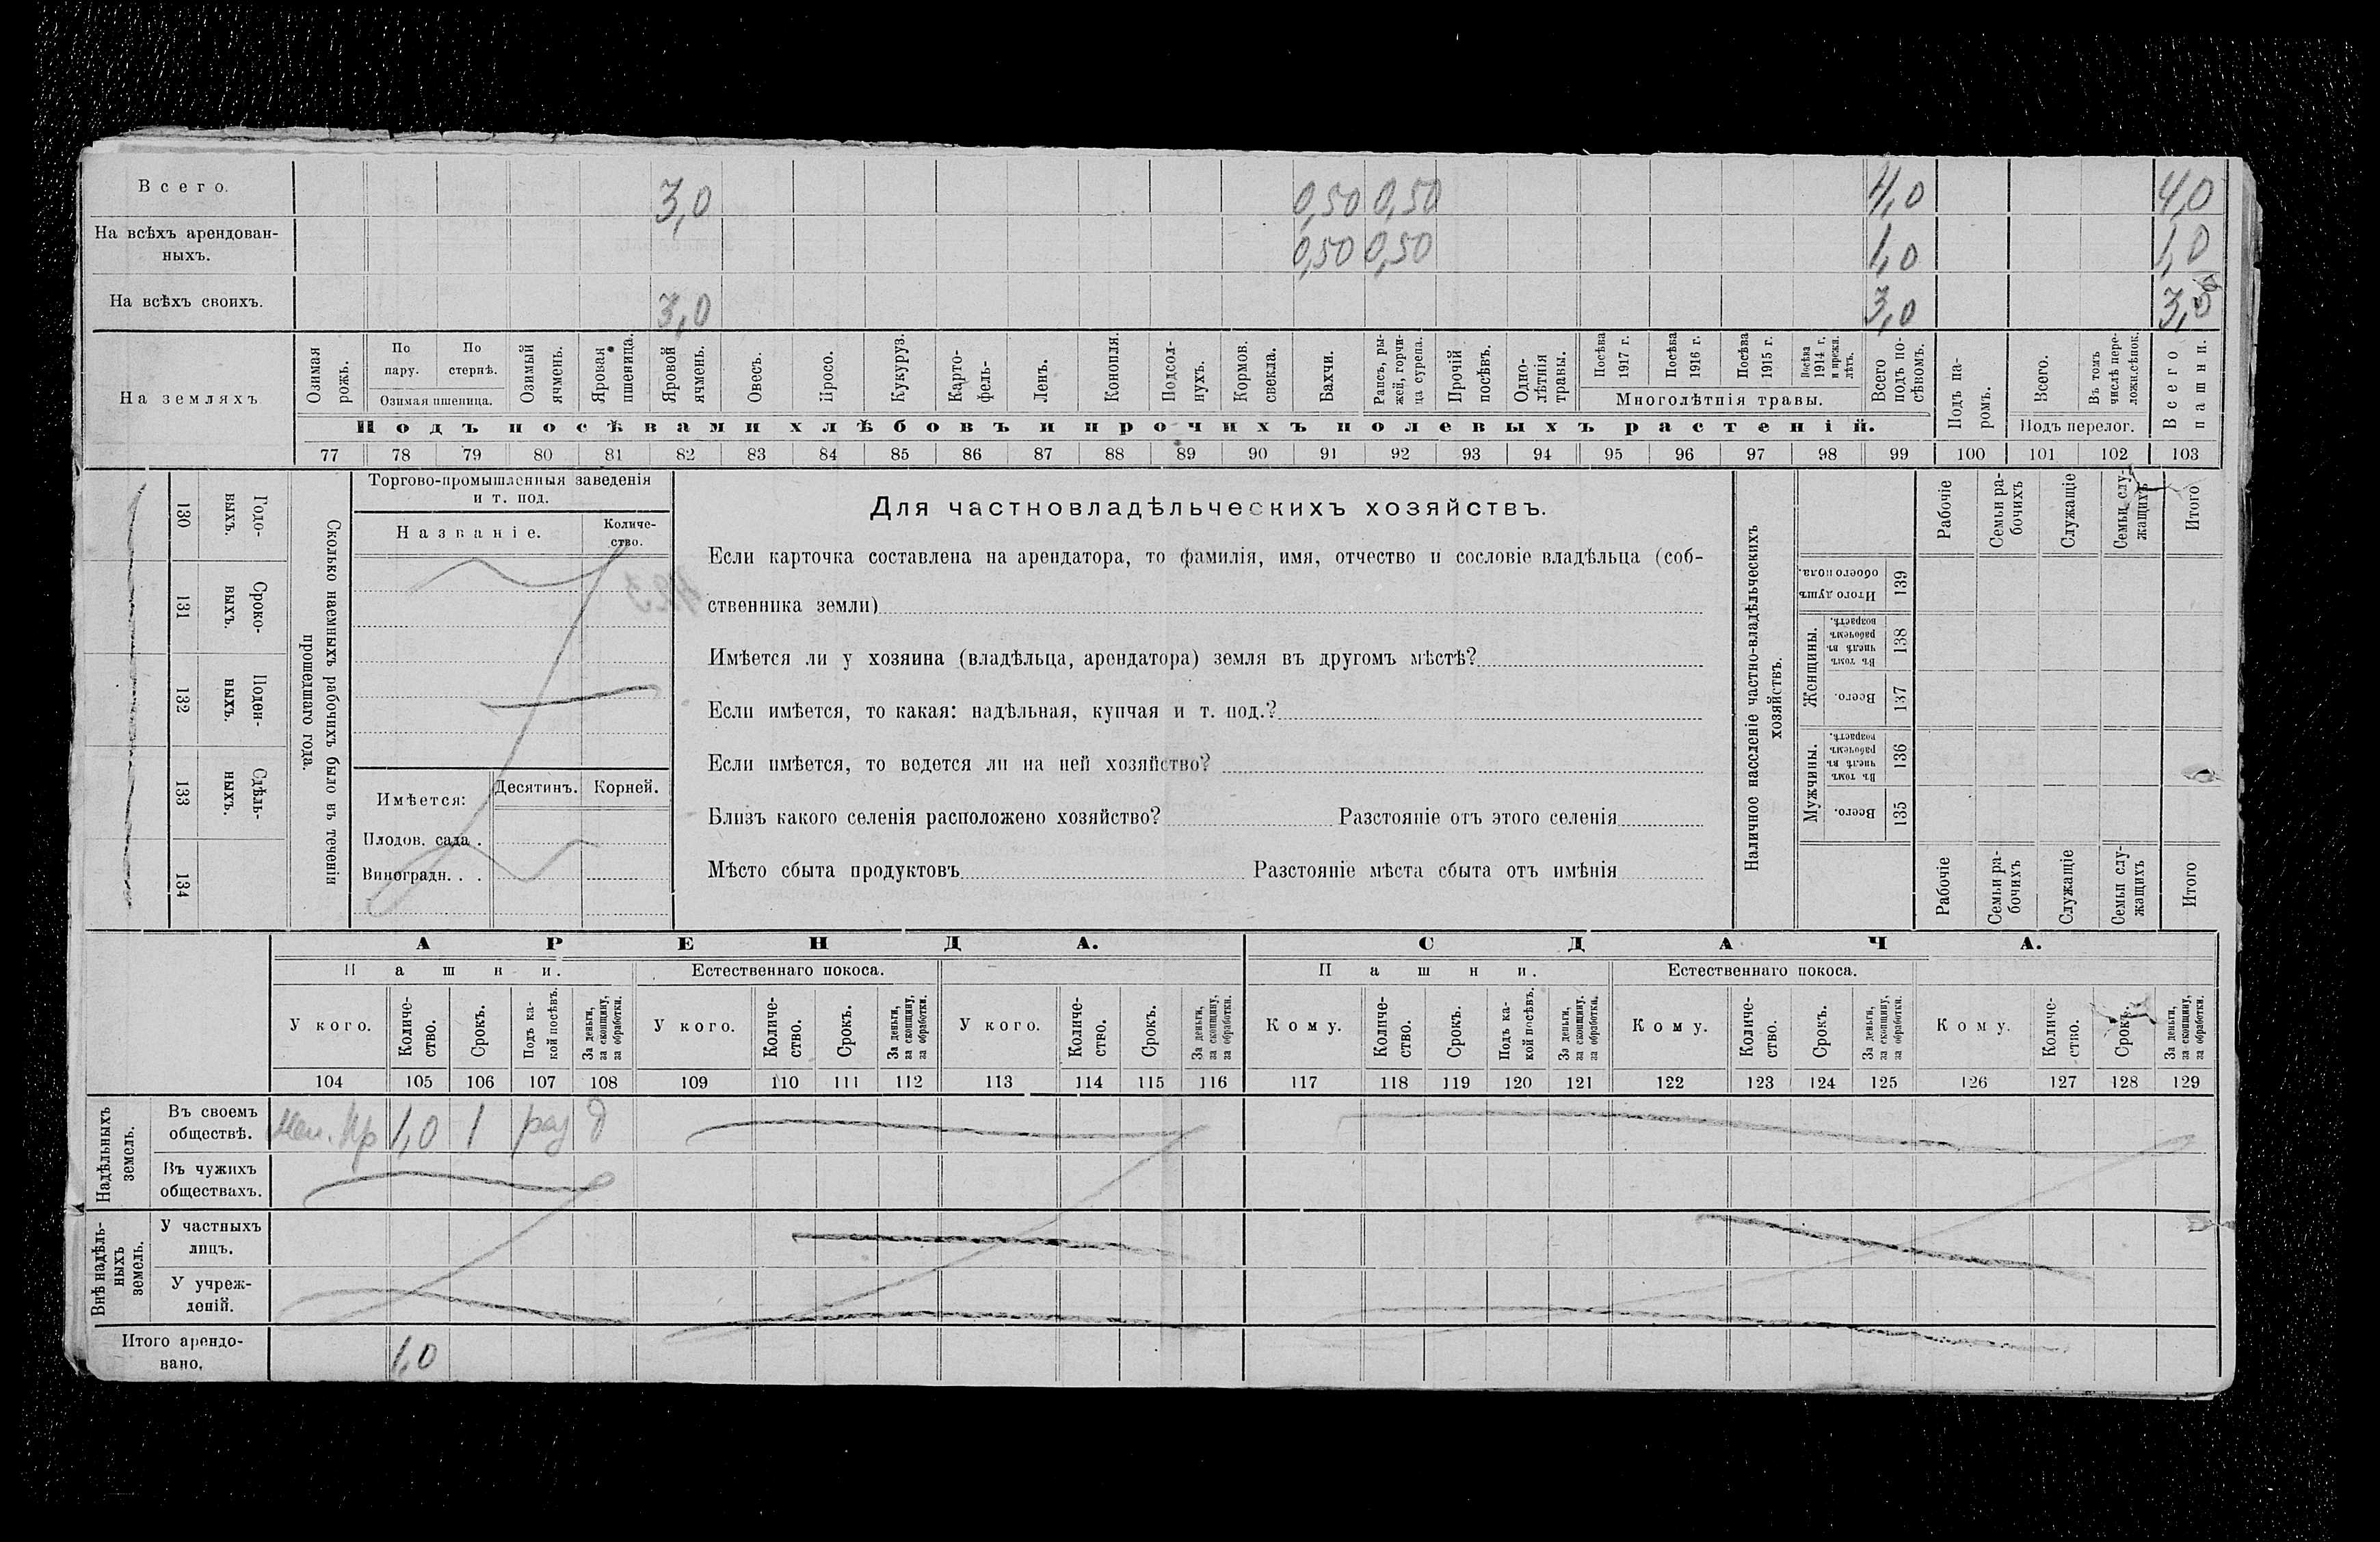 Всего. 3,0 0,50 0,50 4,0 4,0
На всѣхъ арендован-
ныхъ. 0,50 0,50 1,0 1,0
На всѣхъ своихъ. 3,0 3,0
На земляхъ
Озимая рожь.
По пару.
По стернѣ.
Озимая пшеница.
Озимый ячмень.
Яровая пшеница.
Яровой ячмень.
Овесъ.
Просо.
Кукуруз.
Карто-
фель-
Ленъ.
Конопля.
Подсол-
нухъ.
Кормов. свекла.
Бахчи.
Рапсъ, ры-
жей, горчи-
ца сурепа.
Прочій посѣвъ.
Одно-
лѣтнія травы.
Посѣва 1917 г.
Посѣва 1916 г.
Посѣва 1915 г.
Посѣва 1914 г. и прежн. лѣтъ.
Многолѣтнія травы.
Всего подъ по-
сѣвомъ.
Подъ па-
ромъ.
Всего.
Въ томъ числѣ пере-
ложн.сѣнок.
Подъ перелог.
Всего пашни.
Подъ посѣвами хлѣбовъ и прочихъ полевыхъ растеній.
77 78 79 80 81 82 83 84 85 86 87 88 89 90 91 92 93 94 95 96 97 98 99 100 101 102 103
130 Годо-
выхъ.
131 Сроко-
выхъ.
132 Поден-
ныхъ.
133 Сдѣль-
ныхъ.
134
Сколько наемныхъ рабочихъ было въ теченіи
прошедшаго года.
Торгово-промышленныя заведенія
и т. под.
Названіе.
Количе-
ство.
Имѣется:
Десятинъ. Корней.
Плодов. сада .
Виноградн. . .
Для частновладѣльческихъ хозяйствъ.
Если карточка составлена на арендатора, то фамилія, имя, отчество и сословіе владѣльца (соб-
ственника земли)
Имѣется ли у хозяина (владѣльца, арендатора) земля въ другомъ мѣстѣ?
Если имѣется, то какая: надѣльная, купчая и т. под.?
Если имѣется, то ведется ли на ней хозяйство?
Близъ какого селенія расположено хозяйство? Разстояніе отъ этого селенія
Мѣсто сбыта продуктовъ Разстояніе мѣста сбыта отъ имѣнія
Наличное населеніе частно-владѣльческихъ
хозяйствъ.
Рабочіе
Семьи ра-
бочихъ
Служащіе
Семьи слу-
жащихъ
Итого
Итого душъ обоего пола. 139
Женщины.
Въ томъ числѣ въ рабочемъ возрастѣ. 138
Всего. 137
Мужчины.
Въ томъ числѣ въ рабочемъ возрастѣ. 136
Всего. 135
Рабочіе
Семьи ра-
бочихъ
Служащіе
Семьи слу-
жащихъ
Итого
АРЕНДА. СДАЧА.
Пашни. Естественнаго покоса. Пашни. Естественнаго покоса.
У кого.
Количе-
ство.
Срокъ.
Подъ ка-
кой посѣвъ.
За деньги, за скопщину, за обработки.
У кого.
Количе-
ство.
Срокъ.
За деньги, за скопщину, за обработки.
У кого.
Количе-
ство.
Срокъ.
За деньги, за скопщину, за обработки.
Кому.
Количе-
ство.
Срокъ.
Подъ ка-
кой посѣвъ.
За деньги, за скопщину, за обработки.
Кому.
Количе-
ство.
Срокъ.
За деньги, за скопщину, за обработки.
Кому.
Количе-
ство.
Срокъ.
За деньги, за скопщину, за обработки.
104 105 106 107 108 109 110 111 112 113 114 115 116 117 118 119 120 121 122 123 124 125 126 127 128 129
Надѣльныхъ земель.
Въ своемъ
обществѣ. 1,0 1 раз д
Въ чужихъ
обществахъ.
Внѣ надѣль-
ныхъ земель.
У частныхъ
лицъ.
У учреж-
деній.
Итого арендо-
вано. 1,0